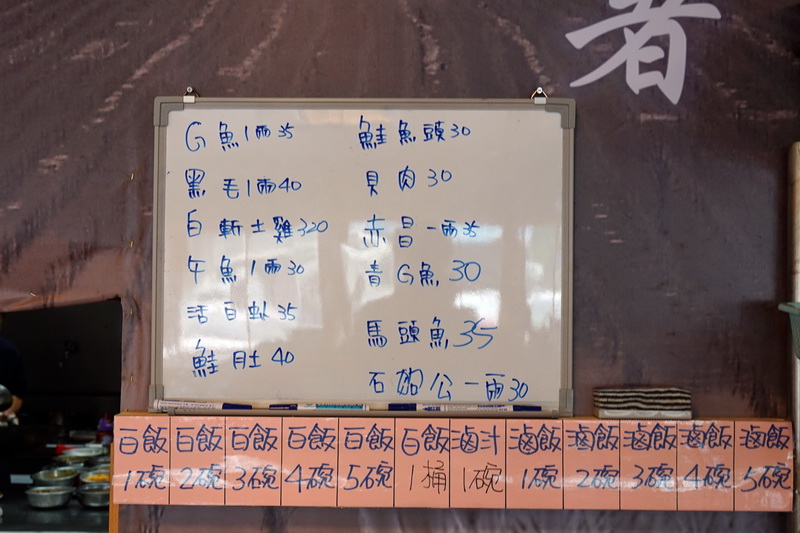 者
G魚1兩35
黑毛1兩40
白斬土雞320
午魚1兩30
活白虾35
鮭肚40
鮭魚頭30
貝肉30
赤昌一兩35
青G魚30
馬頭魚35
石蚼公一兩30
白飯1碗
白飯2碗
白飯3碗
白飯4碗
白飯5碗
白飯1桶
滷汁1碗
滷飯1碗
滷飯2碗
滷飯3碗
滷飯4碗
滷飯5碗